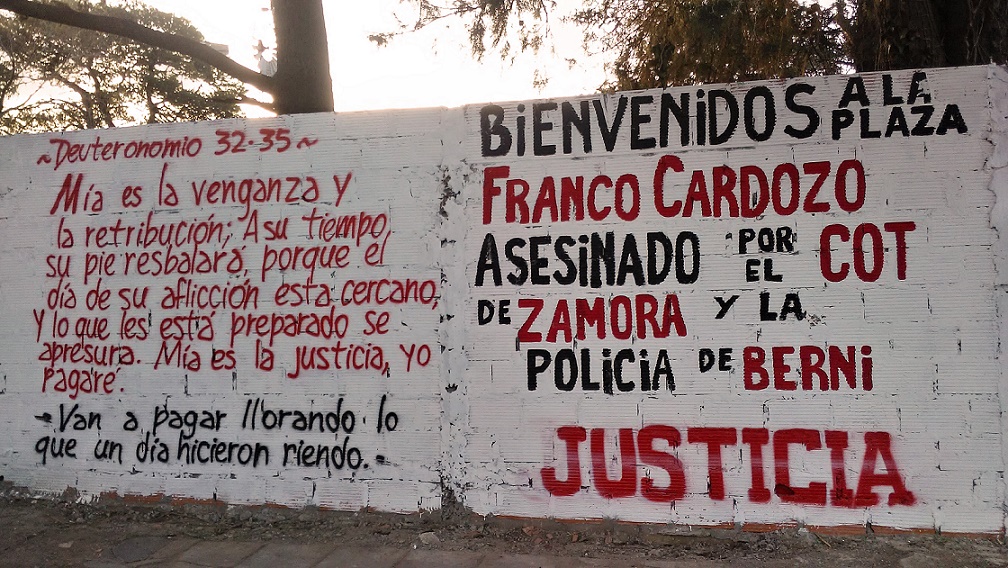 ~Deuteronomio 32-35~
Mía es la venganza y
la retribución; A su tiempo
su pie resbalará, porque el
día de su aflicción está cercano,
Y lo que les está preparado se
apresura. Mía es la justicia, yo
pagaré.
-Van a pagar llorando lo
que un día hicieron riendo.-
BiENVENiDOS A LA PLAZA
FRANCO CARDOZO
ASESiNADO POR EL COT
DE ZAMORA Y LA
POLiCiA DE BERNi
JUSTICIA